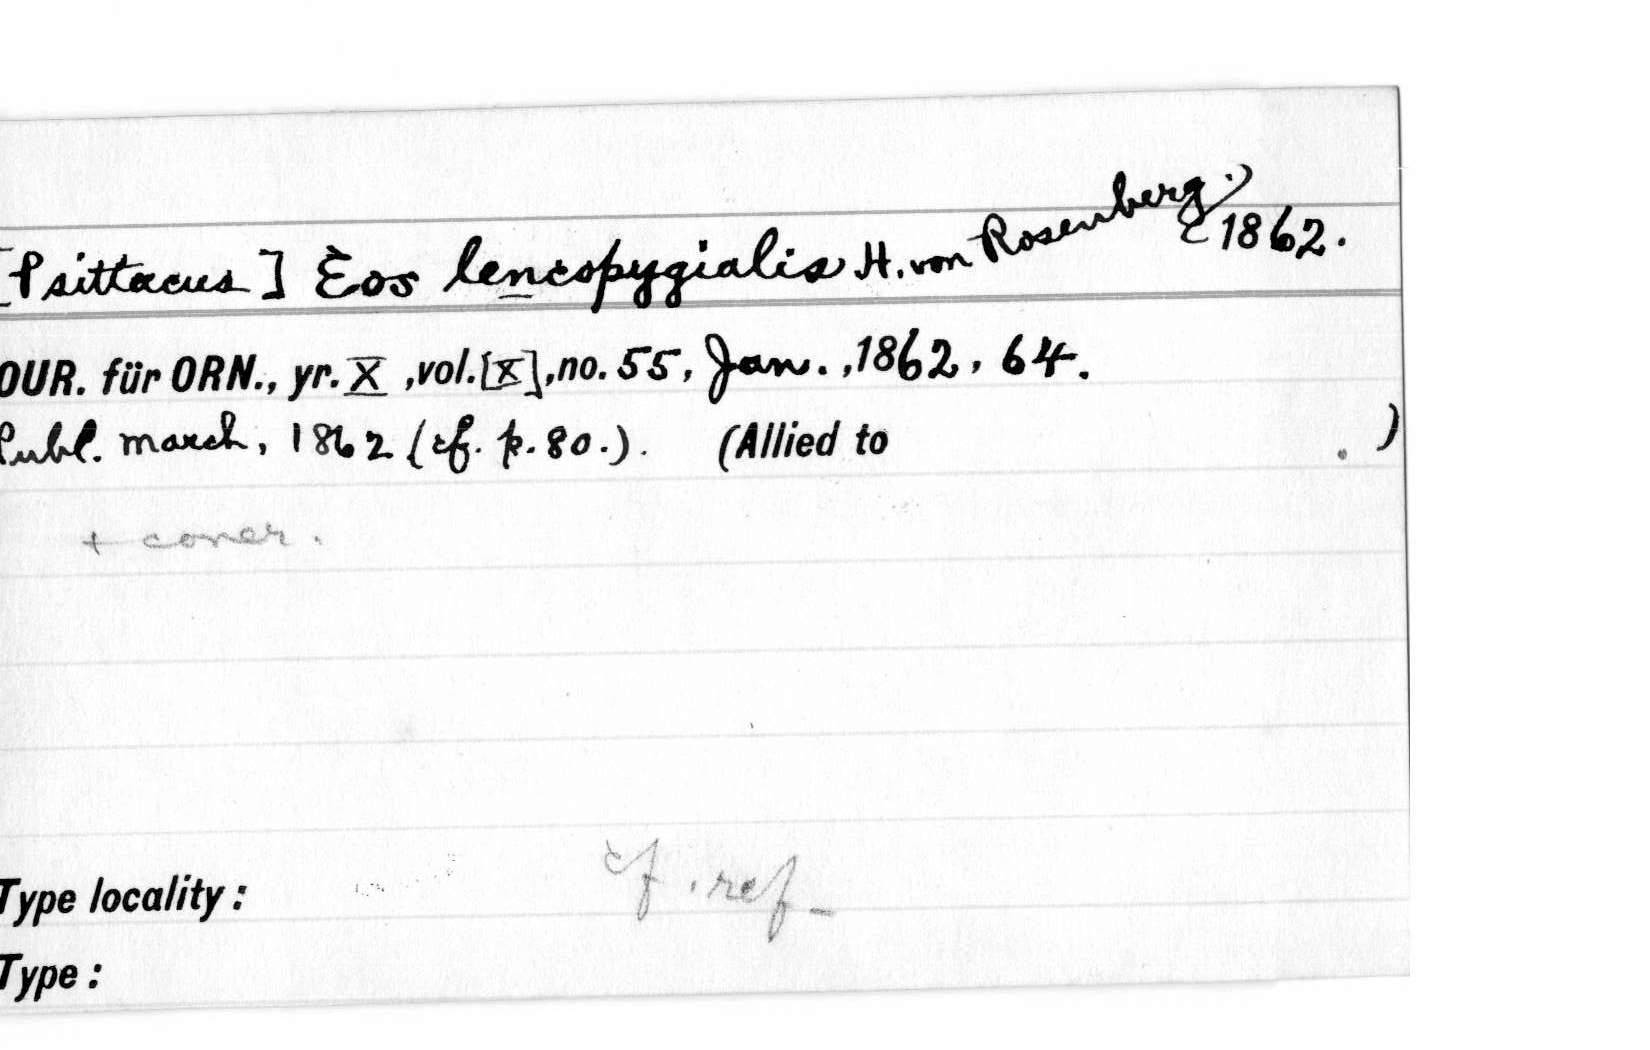 [Psittacus] Eos lencopygialis H. von Rosenberg.) 1862.
OUR. für ORN., yr. X, vol. [X], no. 55, Jan., 1862, 64.
Publ. march, 1862 (cf. p. 80.). (Allied to . )
+ comer.
cf. ref-
Type locality:
Type: